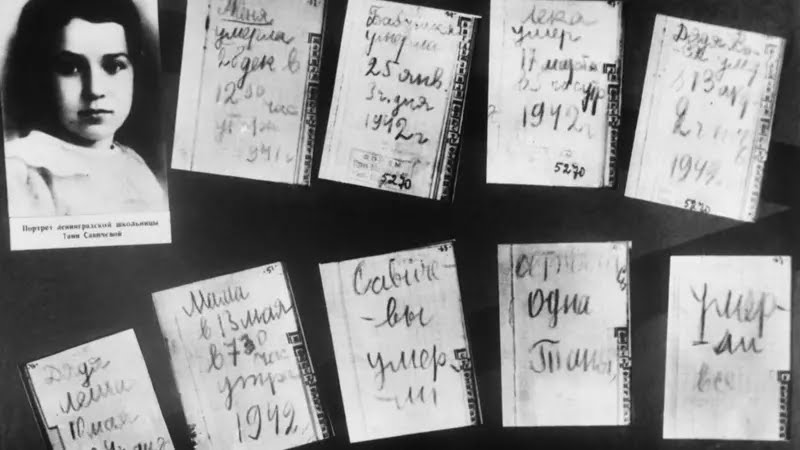 Портрет ленинградской школьницы
Тани Савичевой
Женя
умерла
28 дек в
12 30
час
1941 г
Бабушка
умерла
25 янв.
3 ч. дня
1942 г
5270
Лека
умер
17 марта
1942 г
5270
Дядя Ва-
ся ум
в 13 апр
2 ч
1942
5270
Дядя
Леша
10 мая
Мама
в 13 мая
в 7 30
час
утра
1942
Савиче-
-вы
умер-
-ли
осталась
одна
Таня
Умер-
-ли
все